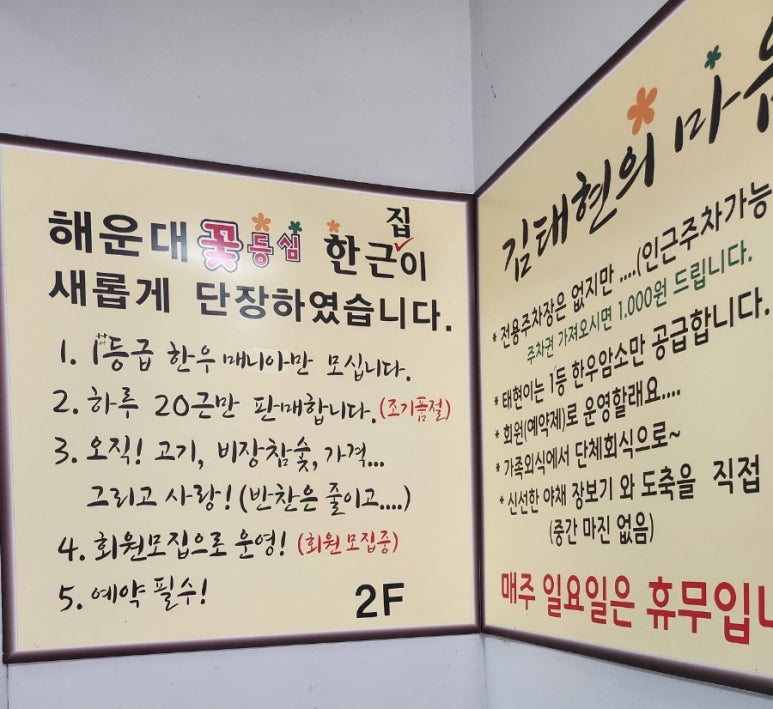 해운대 꽃등심 한근집이
새롭게 단장하였습니다.
1. 1⁺⁺등급 한우 매니아만 모십니다.
2. 하루 20근만 판매합니다. (조기품절)
3. 오직! 고기, 비장참숯, 가격...
그리고 사랑! (반찬은 줄이고....)
4. 회원모집으로 운영! (회원 모집중)
5. 예약 필수!
2F
김태현의 마음
* 전용주차장은 없지만 ....(인근주차가능
주차권 가져오시면 1.000원 드립니다.
* 태현이는 1등 한우암소만 공급합니다.
* 회원(예약제)로 운영할래요....
* 가족외식에서 단체회식으로~
* 신선한 야채 장보기 와 도축을 직접
(중간 마진 없음)
매주 일요일은 휴무입니